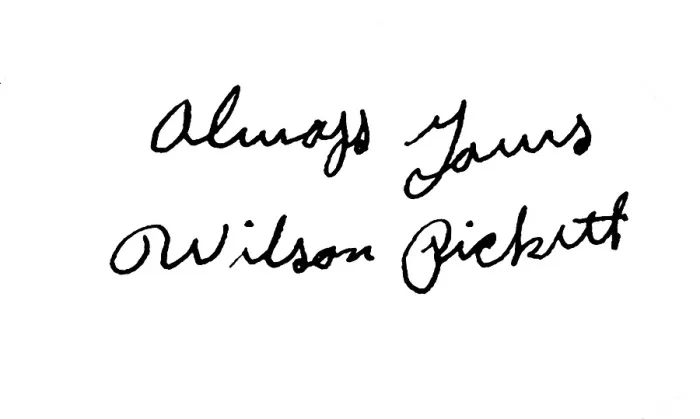 Always Yours
Wilson Pickett